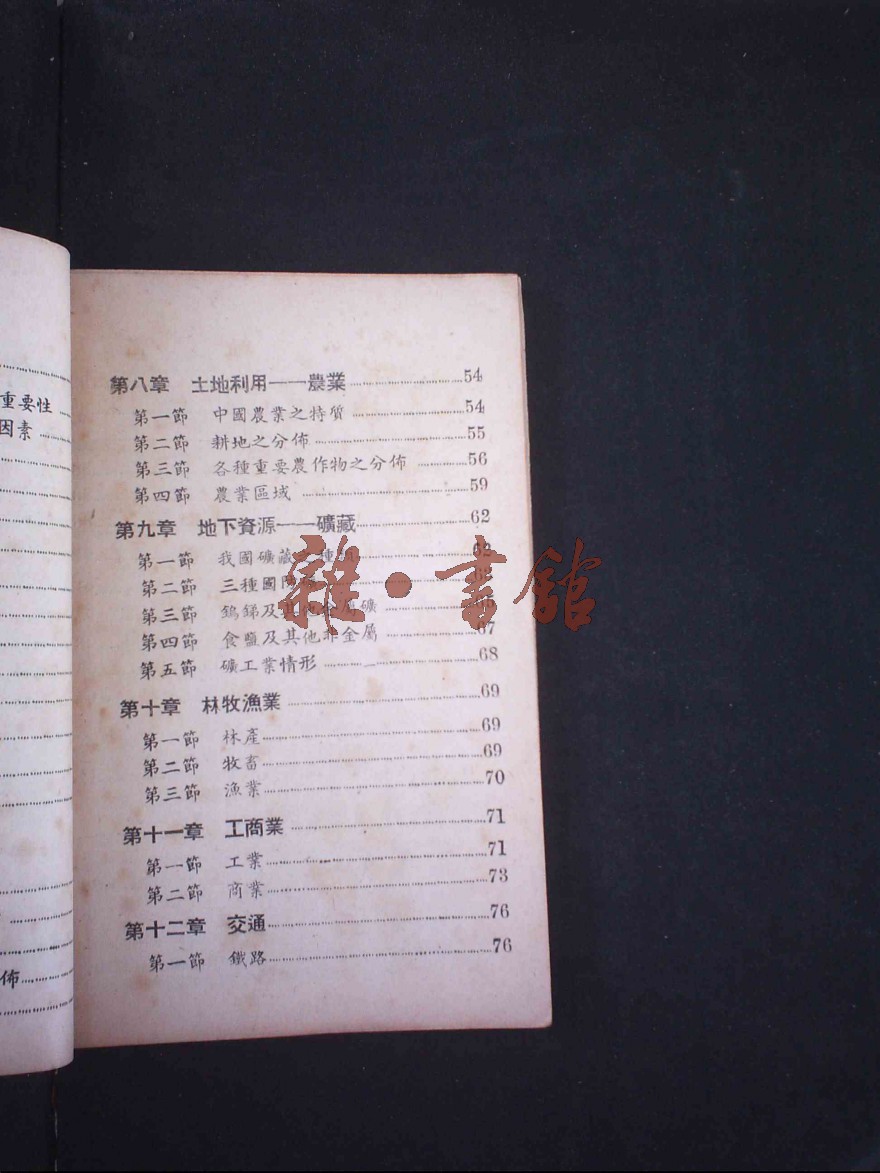 重要性
因素
佈
第八章 土地利用——農業 54
第一節 中國農業之特質 54
第二節 耕地之分佈 55
第三節 各種重要農作物之分佈 56
第四節 農業區域 59
第九章 地下資源——礦藏 62
第一節 我國礦藏 種 62
第二節 三種國防
第三節 鎢銻及其他金屬礦
第四節 食鹽及其他非金屬 67
第五節 礦工業情形 68
第十章 林牧漁業 69
第一節 林產 69
第二節 牧畜 69
第三節 漁業 70
第十一章 工商業 71
第一節 工業 71
第二節 商業 73
第十二章 交通 76
第一節 鐵路 76
雜·書館